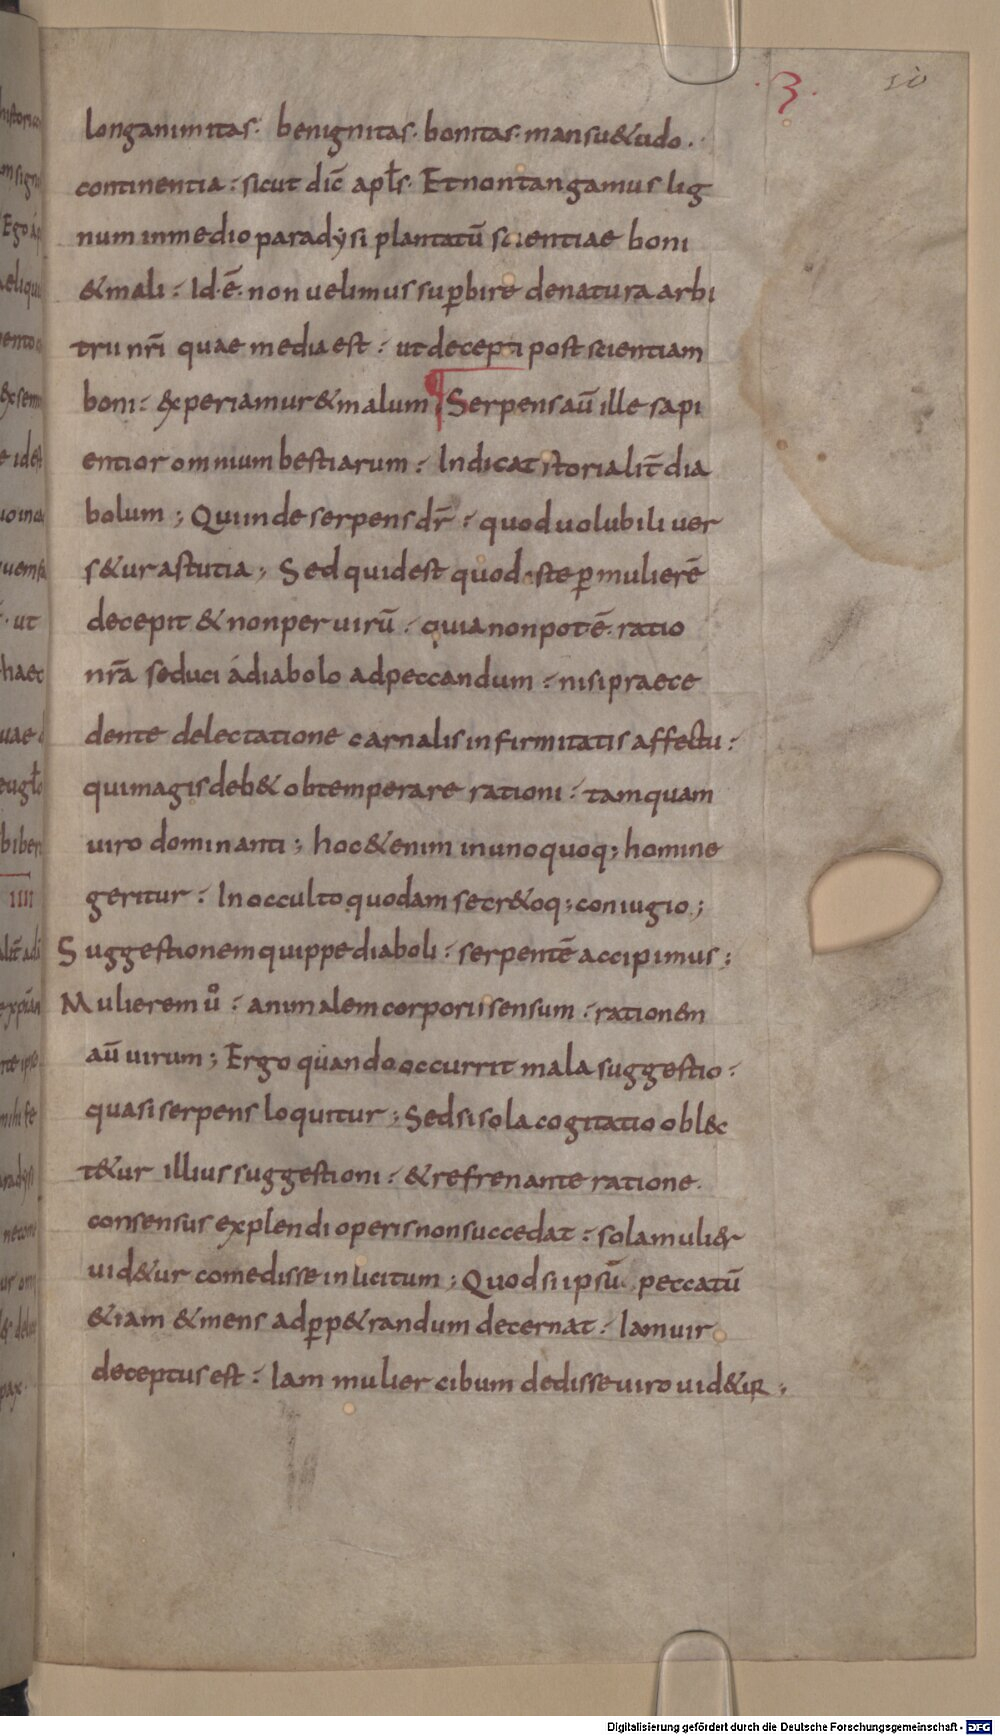 3. 10
longanimitas. benignitas. bonitas. mansu&udo.
continentia: sicut dic̄ apłs. Et non tangamus lig
num inmedio paradysi plantatū scientiae boni
& mali: Id. ē. non uelimus sup̄bire denatura arbi
trii nr̄i quae media est: ut decepti post scientiam
boni: experiamur & malum; Serpens aū ille sapi
entior omnium bestiarum: Indicat istorialit̄ dia
bolum; Qui inde serpens dr̄: quod uolubili uer
s&ur astutia; Sed quid est quod iste p̄ mulierē
decepit & non per uirū: quia non pot. ē. ratio
nr̄a seduci á diabolo ad peccandum: nisi praece
dente delectatione carnalis infirmitatis affectu:
qui magis deb& obtemperare rationi: tamquam
uiro dominanti; hoc &enim in uno quoq; homine
geritur: In occulto quodam secr&oq; coniugio;
Suggestionem quippe diaboli: serpentē accipimus;
Mulierem uͦ: animalem corporis sensum: rationem
aū uirum; Ergo quando occurrit mala suggestio:
quasi serpens loquitur; Sed si sola cogitatio oblec
t&ur illius suggestioni: & refrenante ratione.
consensus explendi operis non succedat: sola muli&r
uid&ur comedisse inlicitum; Quod si ipsū peccatū
&iam & mens ad p̄p&randum decernat: Iam uir
deceptus est: Iam mulier cibum dedisse uiro uid&ur;
Digitalisierung gefördert durch die Deutsche Forschungsgemeinschaft - DFG